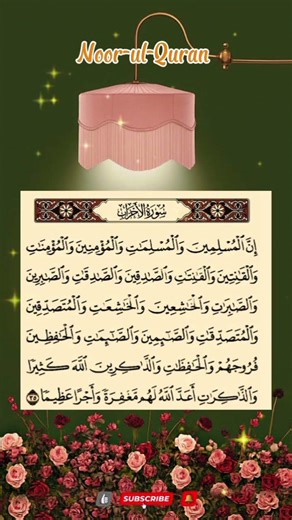 Noor-ul-Quran
سُورَةُ الأَحْزَابِ
إِنَّ ٱلْمُسْلِمِينَ وَٱلْمُسْلِمَٰتِ وَٱلْمُؤْمِنِينَ وَٱلْمُؤْمِنَٰتِ
وَٱلْقَٰنِتِينَ وَٱلْقَٰنِتَٰتِ وَٱلصَّٰدِقِينَ وَٱلصَّٰدِقَٰتِ وَٱلصَّٰبِرِينَ
وَٱلصَّٰبِرَٰتِ وَٱلْخَٰشِعِينَ وَٱلْخَٰشِعَٰتِ وَٱلْمُتَصَدِّقِينَ
وَٱلْمُتَصَدِّقَٰتِ وَٱلصَّٰٓئِمِينَ وَٱلصَّٰٓئِمَٰتِ وَٱلْحَٰفِظِينَ
فُرُوجَهُمْ وَٱلْحَٰفِظَٰتِ وَٱلذَّٰكِرِينَ ٱللَّهَ كَثِيرًا
وَٱلذَّٰكِرَٰتِ أَعَدَّ ٱللَّهُ لَهُم مَّغْفِرَةً وَأَجْرًا عَظِيمًا ٣٥
SUBSCRIBE